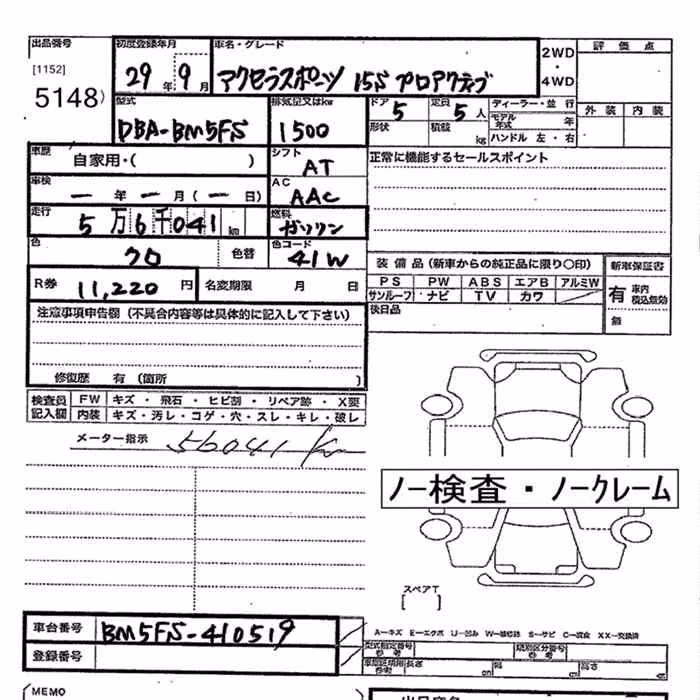 出品番号 初度登録年月 車名・グレード 2WD・4WD 評価点
[1152] 5148) 29年 9月 アクセラスポーツ 15S プロアクティブ
型式 排気量又はkw ドア 5 定員 5人 ディーラー・並行 外装 内装
DBA-BM5FS 1500 形状 積載 kg モデル年式 年 ハンドル 左・右
車歴 自家用・( ) シフト AT 正常に機能するセールスポイント
車検 ー年ー月(ー日) AC AAC
走行 5万6千041km 燃料 ガソリン
色 クロ 色替 色コード 41W 装備品(新車からの純正品に限り〇印) 新車保証書
R券 11,220円 名変期限 月 日 PS PW ABS エアB アルミW 有 車内 税込有効
サンルーフ ナビ TV カワ
注意事項申告欄(不具合内容等は具体的に記入して下さい) 後日品 無
修復歴 有(箇所 )
検査員 FW キズ・飛石・ヒビ割・リペア跡・X要
記入欄 内装 キズ・汚レ・コゲ・穴・スレ・キレ・破レ
メーター指示 56041 km
ノー検査・ノークレーム
スペアT
[ ]
車台番号 BM5FS-410519
A-キズ E-エクボ U-凹み W-補修跡 S-サビ C-腐食 XX-交換済
登録番号 型式指定番号 参考 類別区分番号 参考
車庫証明用 参考 長さ cm 幅 cm 高さ cm
(MEMO